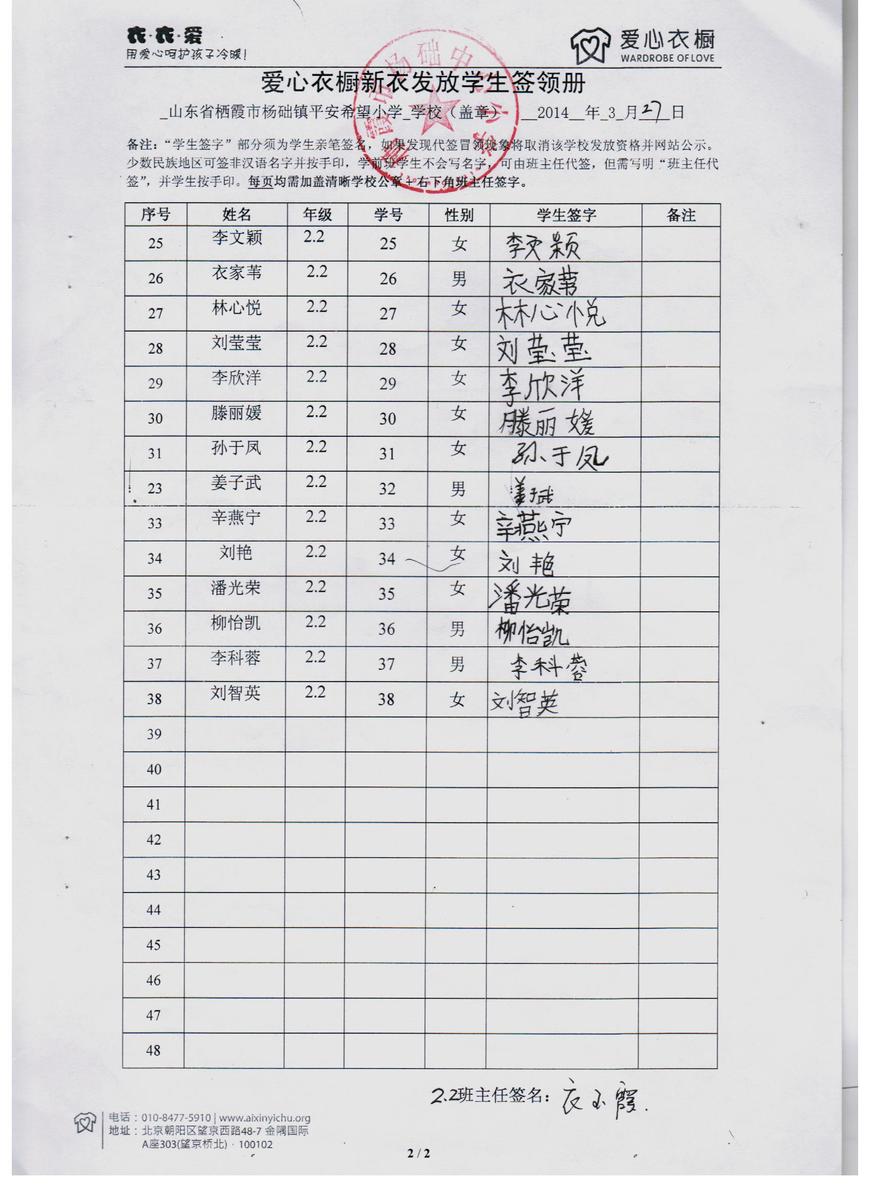 衣·衣·爱
用爱心呵护孩子冷暖!
爱心衣橱
WARDROBE OF LOVE
爱心衣橱新衣发放学生签领册
_山东省栖霞市杨础镇平安希望小学_学校（盖章） __2014__年_3_月27_日
备注：“学生签字”部分须为学生亲笔签名，如果发现代签冒领现象将取消该学校发放资格并网站公示。
少数民族地区可签非汉语名字并按手印，学前班学生不会写名字，可由班主任代签，但需写明“班主任代
签”，并学生按手印。每页均需加盖清晰学校公章+右下角班主任签字。
序号 姓名 年级 学号 性别 学生签字 备注
25 李文颖 2.2 25 女 李文颖
26 衣家苇 2.2 26 男 衣家苇
27 林心悦 2.2 27 女 林心悦
28 刘莹莹 2.2 28 女 刘莹莹
29 李欣洋 2.2 29 女 李欣洋
30 滕丽媛 2.2 30 女 滕丽媛
31 孙于凤 2.2 31 女 孙于凤
23 姜子武 2.2 32 男 姜子武
33 辛燕宁 2.2 33 女 辛燕宁
34 刘艳 2.2 34 女 刘艳
35 潘光荣 2.2 35 女 潘光荣
36 柳怡凯 2.2 36 男 柳怡凯
37 李科蓉 2.2 37 男 李科蓉
38 刘智英 2.2 38 女 刘智英
39
40
41
42
43
44
45
46
47
48
2.2班主任签名：衣玉霞.
电话：010-8477-5910 | www.aixinyichu.org
地址：北京朝阳区望京西路48-7 金隅国际
A座303(望京桥北)·100102
2 / 2